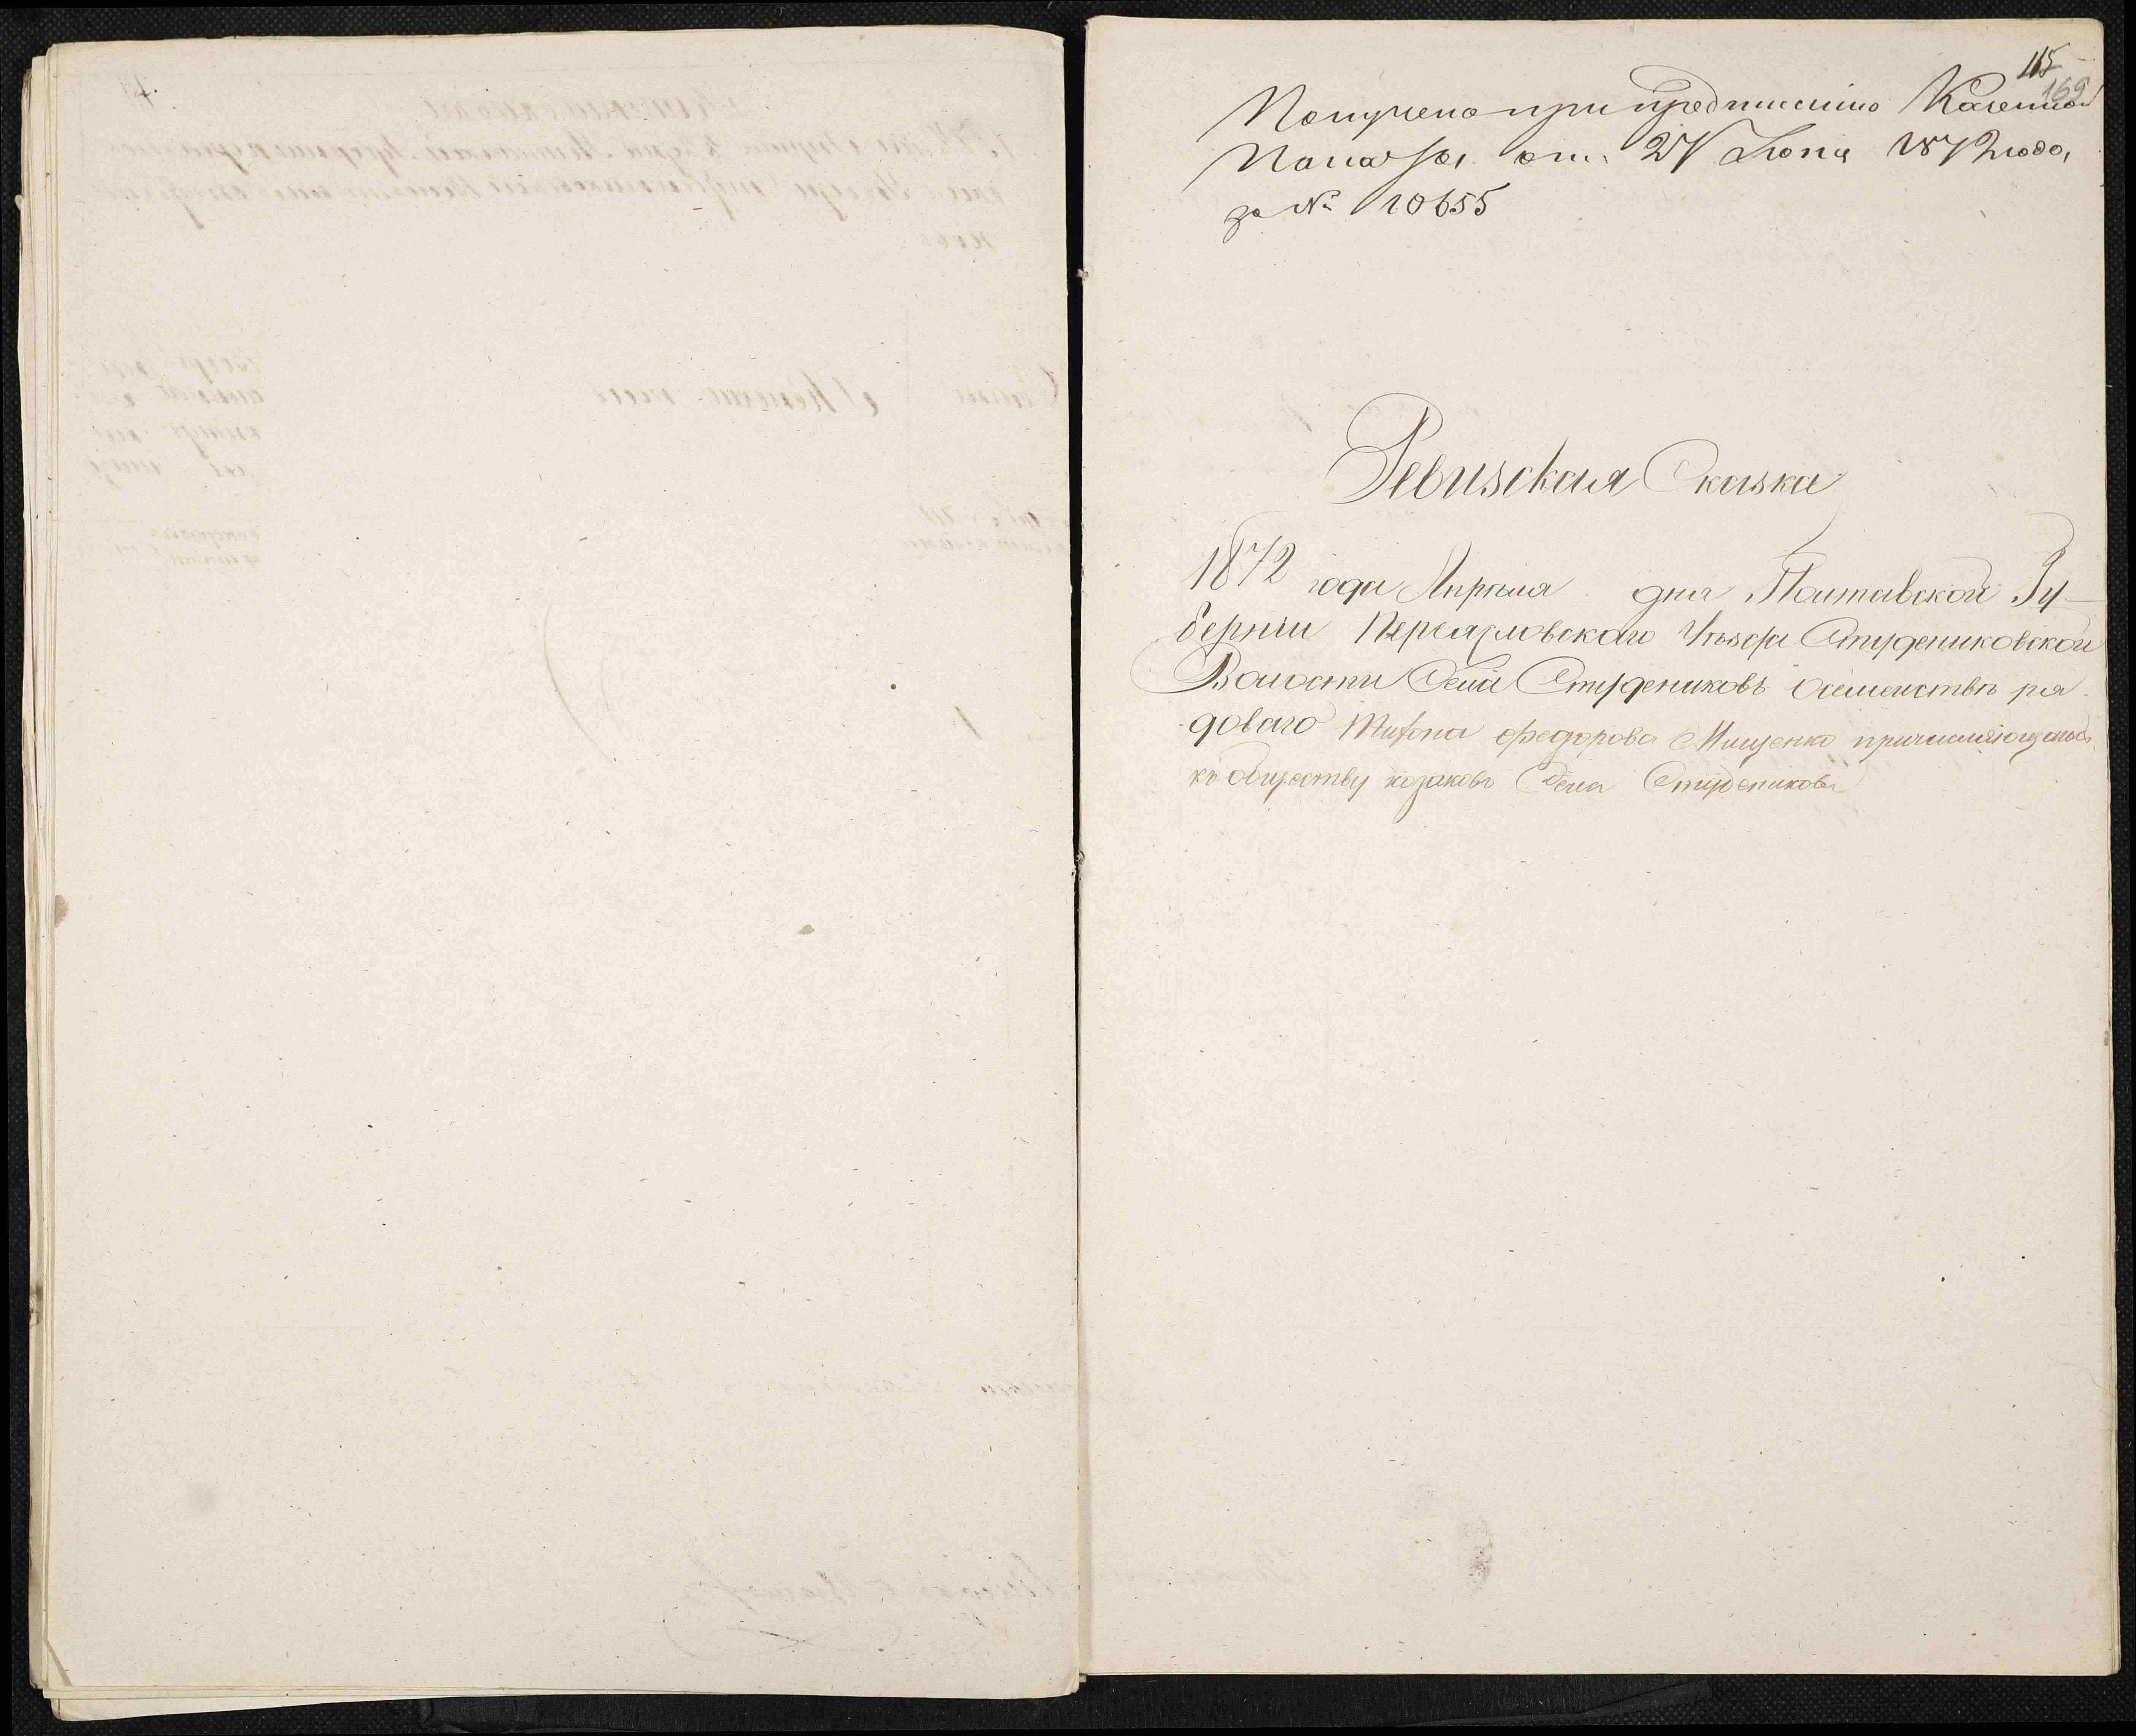 115
169
Получено при предписанiи Казенной
Палаты от 27 Iюня 1872 года,
за № 10655
Ревизская Сказка
1872 года Апреля дня Полтавской Гу-
бернiи Переясловскаго Уѣзда Студениковской
Волости Села Студениковъ о семействѣ ря-
доваго Тифона Федорова Мищенка причисляющагось
къ обществу козаковъ Села Студениковъ